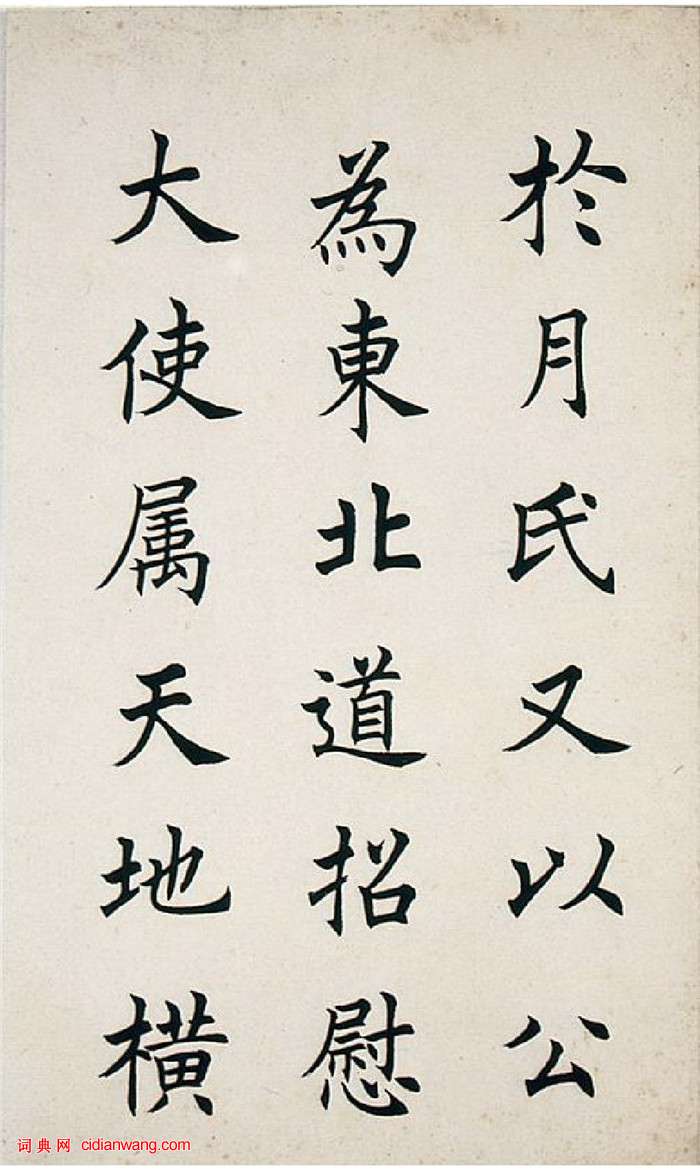 於月氏又以公
為東北道招慰
大使属天地橫
词典网 cidianwang.com